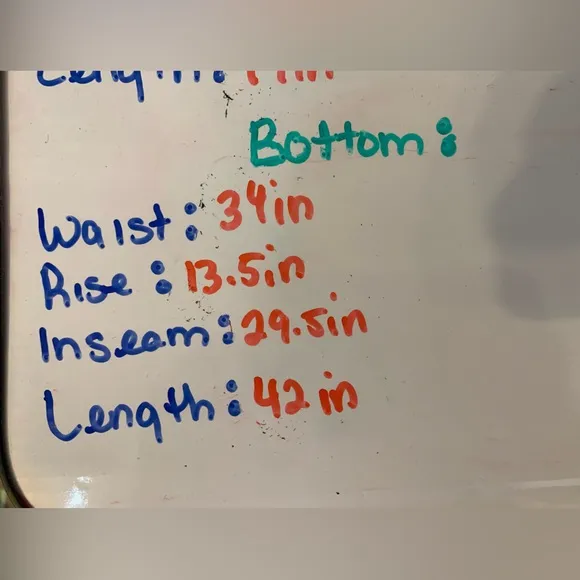 Bottom:
Waist: 34in
Rise: 13.5in
Inseam: 29.5in
Length: 42 in